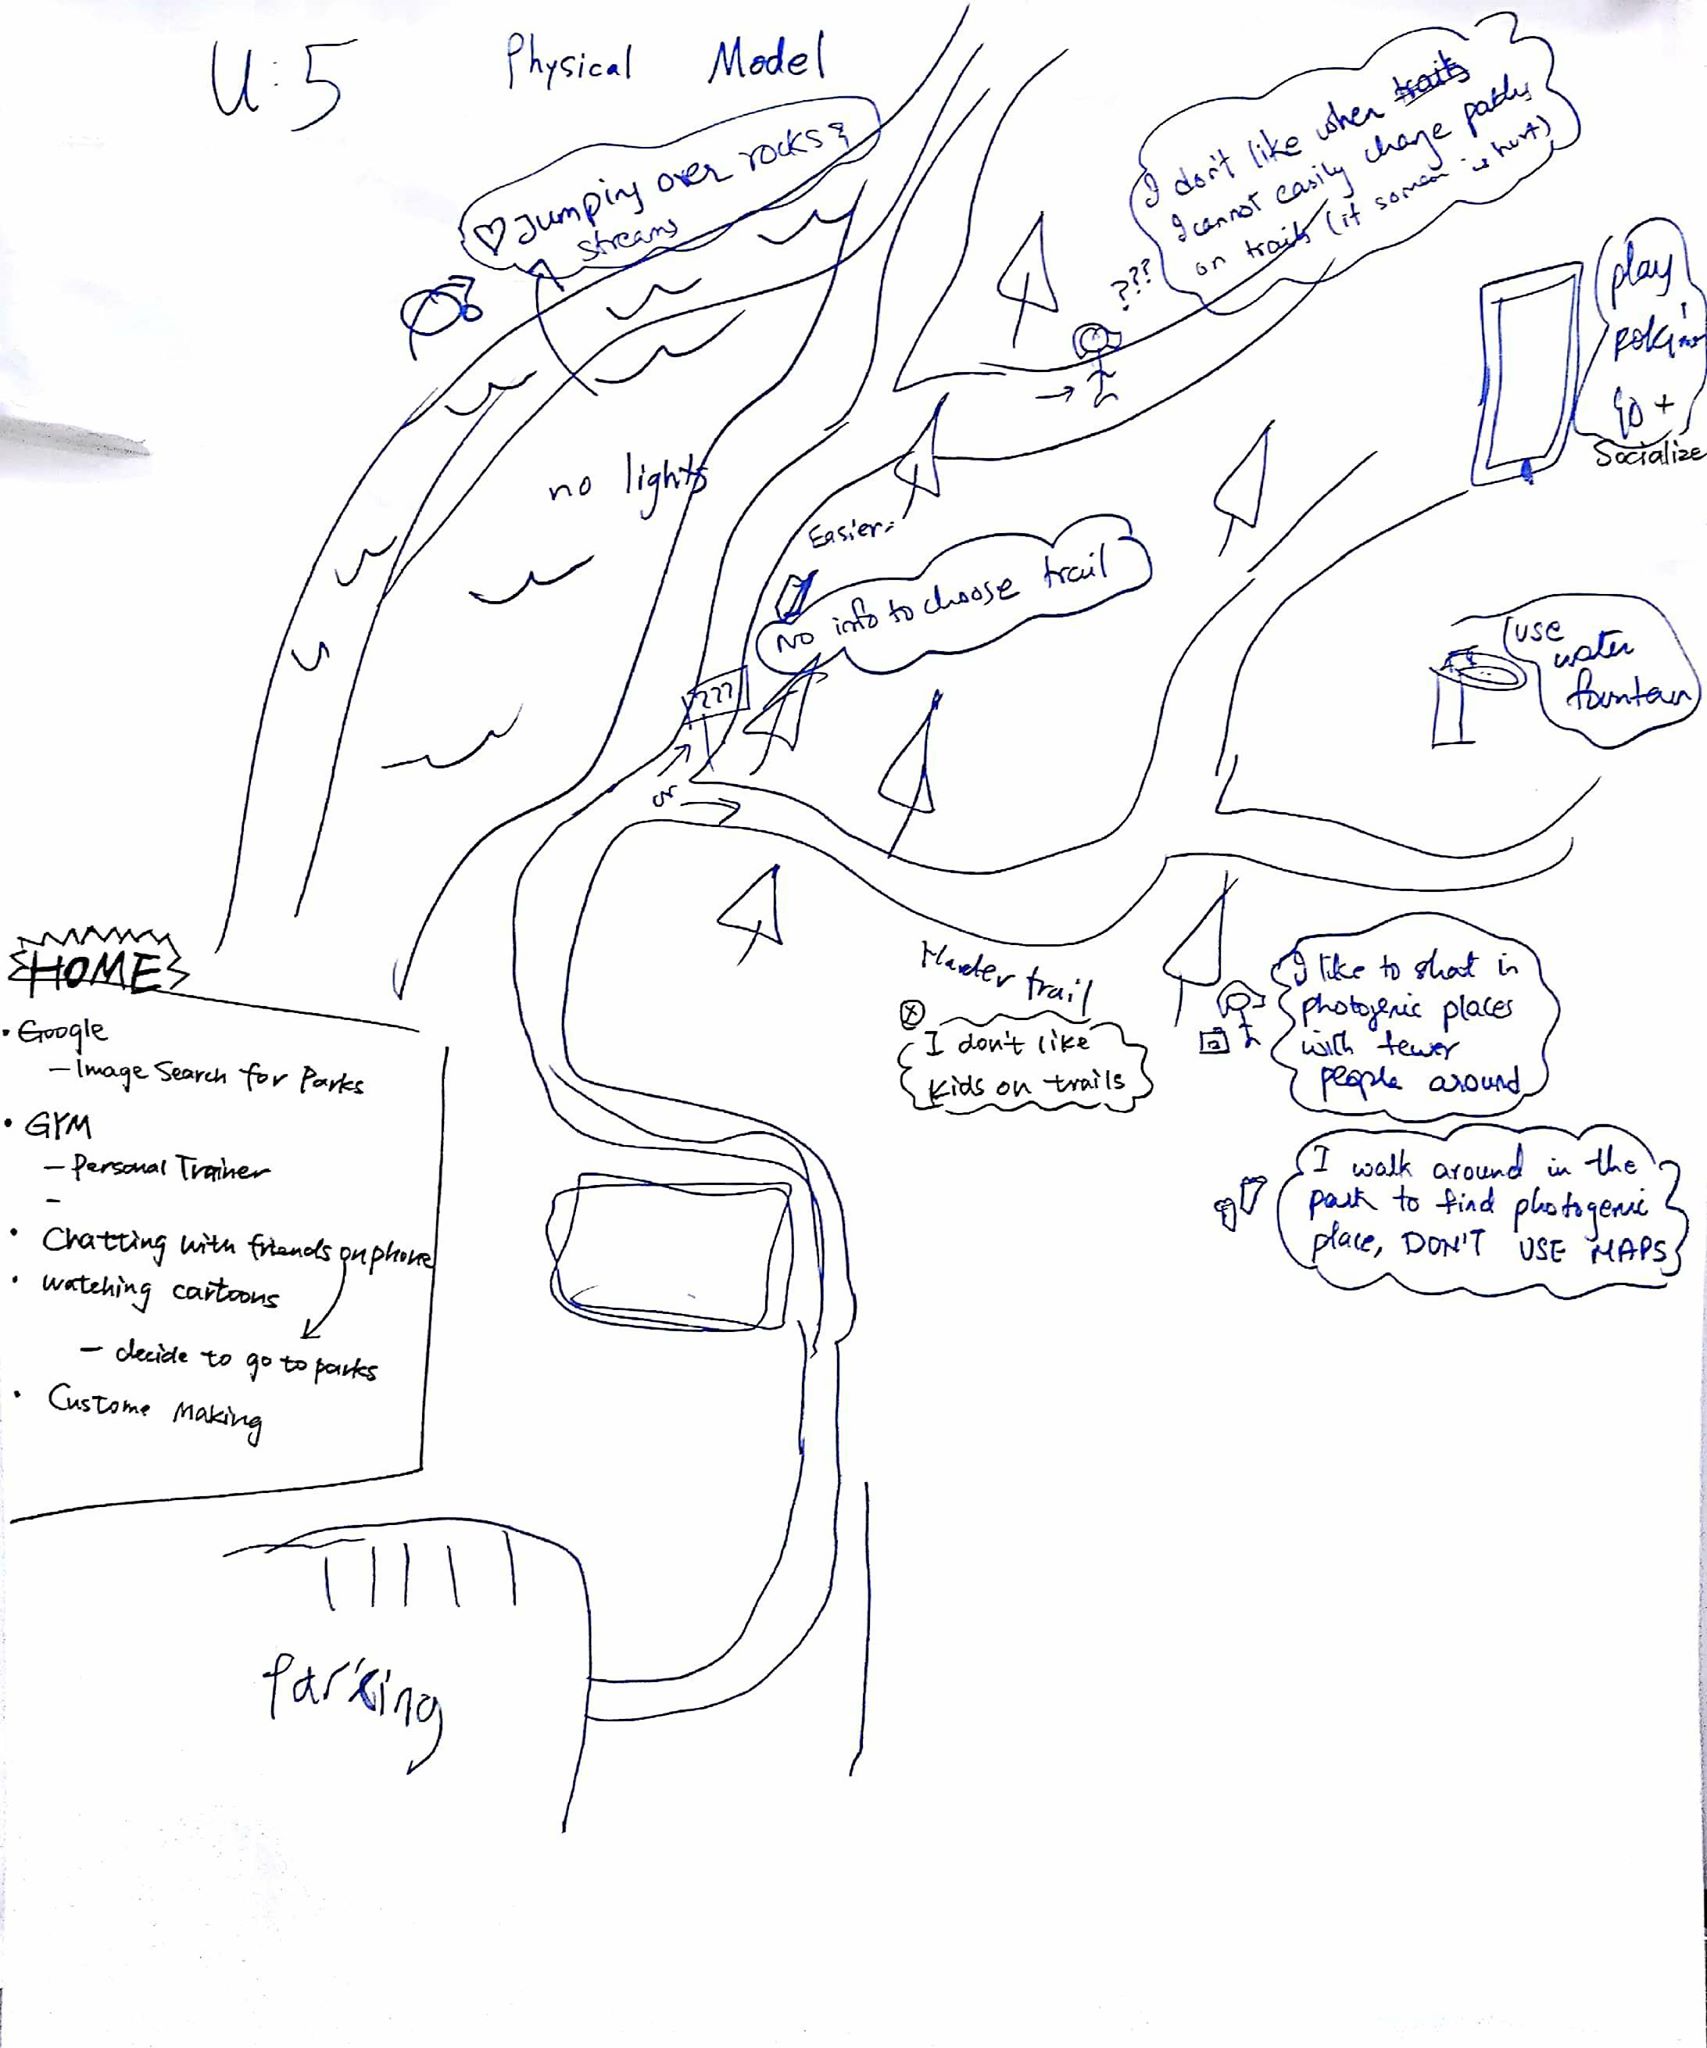 U:5 Physical Model
♡ Jumping over rocks &
streams
I don't like when traits
I cannot easily change paths
on trails (if someon is hurt)
???
play
pokimon
go +
Socialize
no lights
Easier
No info to choose trail
???
or
use
water
fountain
Harder trail
I don't like
kids on trails
I like to shoot in
photogenic places
with fewer
people around
I walk around in the
park to find photogenic
place, DON'T USE MAPS
HOME
• Google
- Image Search for Parks
• GYM
- Personal Trainer
-
• Chatting with friends on phone
• watching cartoons
- decide to go to parks
• Custome Making
Parking